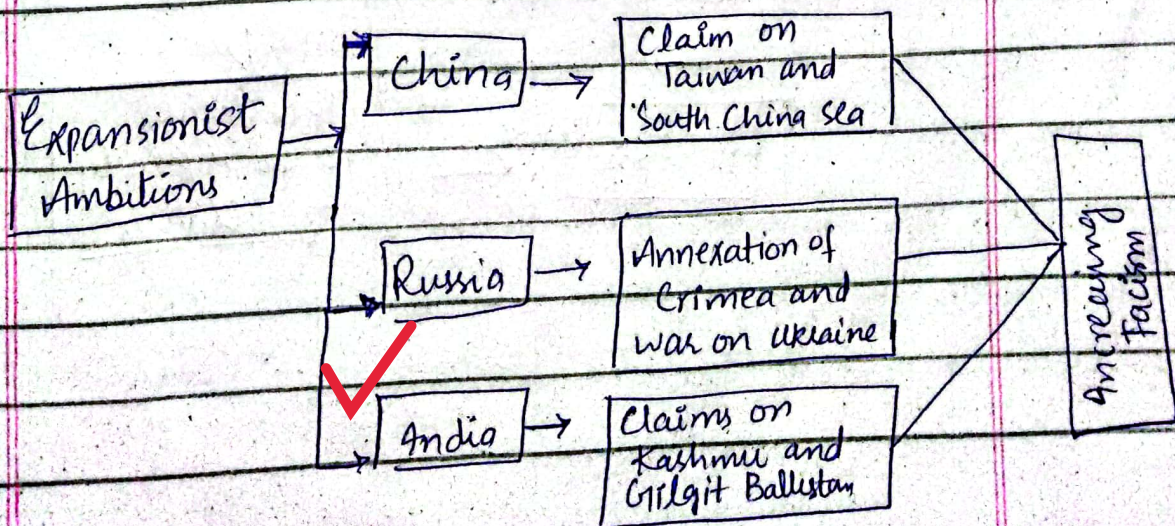 Expansionist
Ambitions
China
Claim on
Taiwan and
South China Sea
Russia
Annexation of
Crimea and
war on Ukraine
India
Claims on
Kashmir and
Gilgit Baltistan
Increasing
Facism